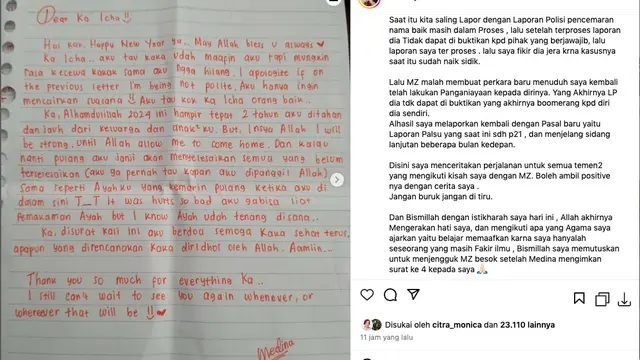 Dear Ka Icha
Hai kak. Happy New Year ya... May Allah bless u always
Ka Icha.. aku tau kaka udah maafin aku tapi mungkin
rasa kecewa kakak sama aku ngga hilang. I apologize if on
the previous letter I'm being not polite, Aku hanya ingin
mencairkan suasana!! Aku tau kok ka Icha orang baik..
Ka, Alhamdulillah 2024 ini hampir tepat 2 tahun aku ditahan
dan jauh dari keluarga dan anak²ku. But, Insya Allah I will
be strong.. until Allah allow me to come home. Dan kalau
nanti pulang aku janji akan menyelesaikan semua yang belum
terselesaikan (aku ga pernah tau kapan aku dipanggil Allah)
sama seperti Ayahku yang kemarin pulang ketika aku di
dalam sini T_T It was hurts so bad aku gabisa liat
pemakaman Ayah but I know Ayah udah tenang disana..
Ka, disurat kali ini aku berdoa semoga kaka sehat terus,
apapun yang direncanakan kaka diridhoi oleh Allah. Aamiin..
Thank you so much for everything ka..
I still can't wait to see you again whenever, or
wherever that will be !!
Medina
Saat itu kita saling Lapor dengan Laporan Polisi pencemaran
nama baik masih dalam Proses , lalu setelah terproses laporan
dia Tidak dapat di buktikan kpd pihak yang berjawajib, lalu
laporan saya ter proses . lalu saya fikir dia jera krna kasusnya
saat itu sudah naik sidik.
Lalu MZ malah membuat perkara baru menuduh saya kembali
telah lakukan Panganiayaan kepada dirinya. Yang Akhirnya LP
dia tdk dapat di buktikan yang akhirnya boomerang kpd diri
dia sendiri.
Alhasil saya melaporkan kembali dengan Pasal baru yaitu
Laporan Palsu yang saat ini sdh p21 , dan menjelang sidang
lanjutan beberapa bulan kedepan.
Disini saya menceritakan perjalanan untuk semua temen2
yang mengikuti kisah saya dengan MZ. Boleh ambil positive
nya dengan cerita saya .
Jangan buruk jangan di tiru.
Dan Bismillah dengan istikharah saya hari ini , Allah akhirnya
Mengerakan hati saya, dan mengikuti apa yang Agama saya
ajarkan yaitu belajar memaafkan karna saya hanyalah
seseorang yang masih Fakir ilmu , Bismillah saya memutuskan
untuk menjengguk MZ besok setelah Medina mengimkan
surat ke 4 kepada saya 🙏🏻
Disukai oleh citra_monica dan 23.110 lainnya
11 jam yang lalu